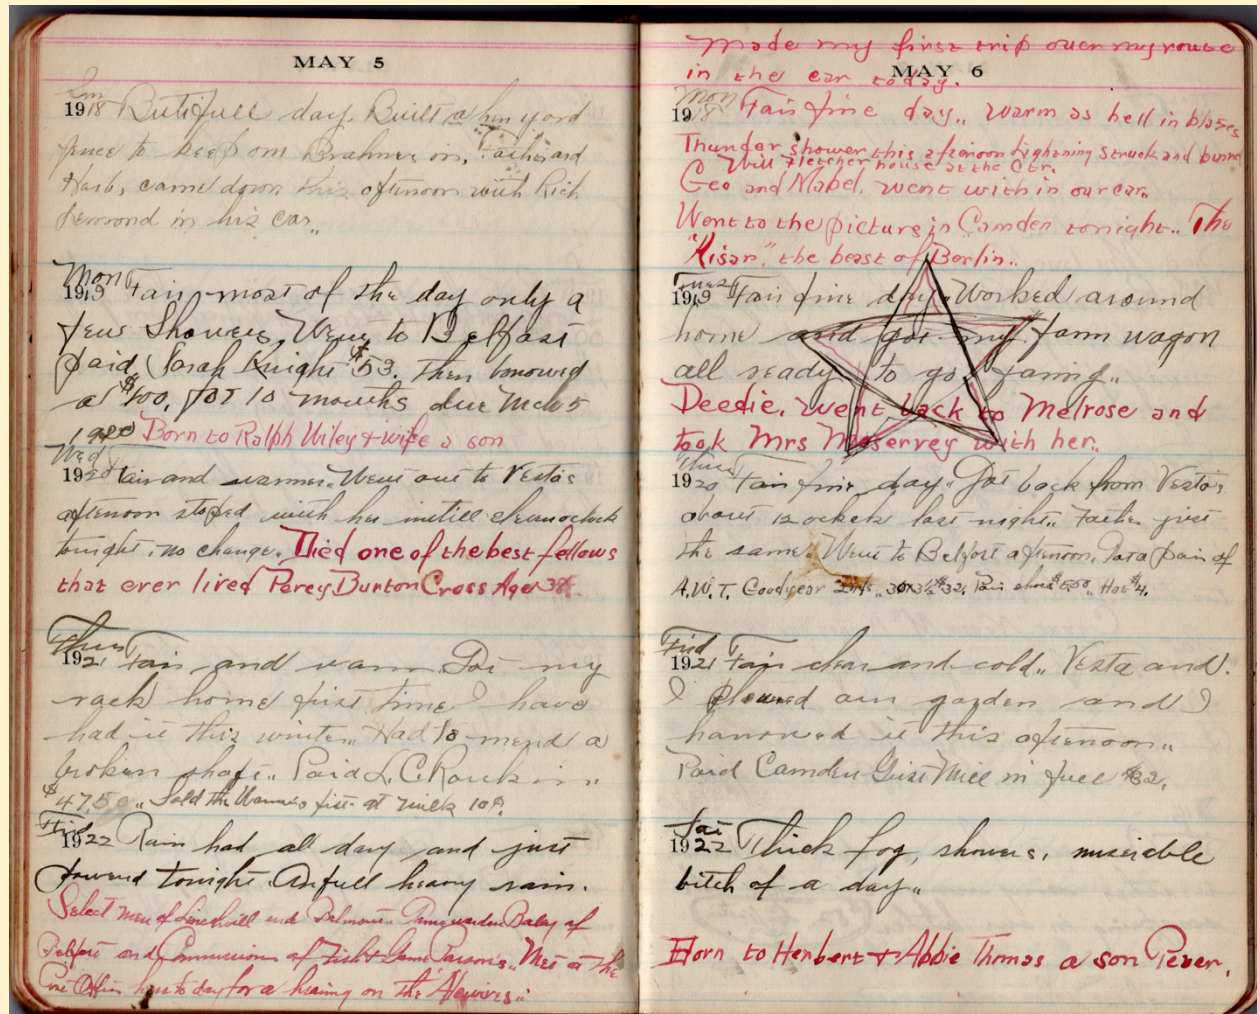 MAY 5
Sun
1918 Butifull day. Built a hen yard
fence to keep om Brahmer in. Father and
Harb, came down this afternoon with Rich
in his car..
Mon
1919 Fair most of the day only a
few Showers. Went to Belfast
paid Sarah Knight $53. then borrowed
a $100, for 10 months due Mch 5
1920 Born to Ralph Wiley + wife a son
Wed
1920 Fair and warmer.. Went out to Vesta's
afternoon stoped with her untill elevenoclock
tonight, no change. Died one of the best fellows
that ever lived Percy Burton Cross Age 38
Thurs
1921 Fair and warm. Got my
rack home first time I have
had it this winter.. Had to mend a
broken shaft.. Paid L.C. Rankin..
$47.50.. Sold the first of milk 10
Frid
1922 Rain had all day and just
toward tonight. Anfull heavy rain.
Select men of Lincolnvill and Belmont. Baley of
Belfast and Commission of Fish + Game Parsons.. Met at the
Post Office here to day for a hearing on the Alewives..
MAY 6
Made my first trip over my route
in the car today.
Mon
1918 Fair fine day.. Warm as hell in blases
Thunder shower this afternoon Lightning struck and burned
Will Fletcher house at the Ctr.
Geo and Mabel. Went with in our car..
Went to the picture in Camden tonight.. The
"Kisar", the beast of Berlin..
Tues
1919 Fair fine day.. Worked around
home and got my farm wagon
all ready to go farmg..
Deedie. Went back to Melrose and
took Mrs Meservey with her..
Thurs
1920 Fair fine day. Got back from Vesta's
about 12 oclock last night.. Father just
the same. Went to Belfast afternoon, pair of
A.W.T. Goodyear 30x3½ $32. Pair shoes Hoe $4.
Frid
1921 Fair clear and cold.. Vesta and.
I plowed our garden and I
harrowed it this afternoon..
Paid Camden Grist Mill in full $32.
Sat
1922 Thick fog, showers, miserible
bitch of a day..
Born to Herbert + Abbie Thomas a son Pever.